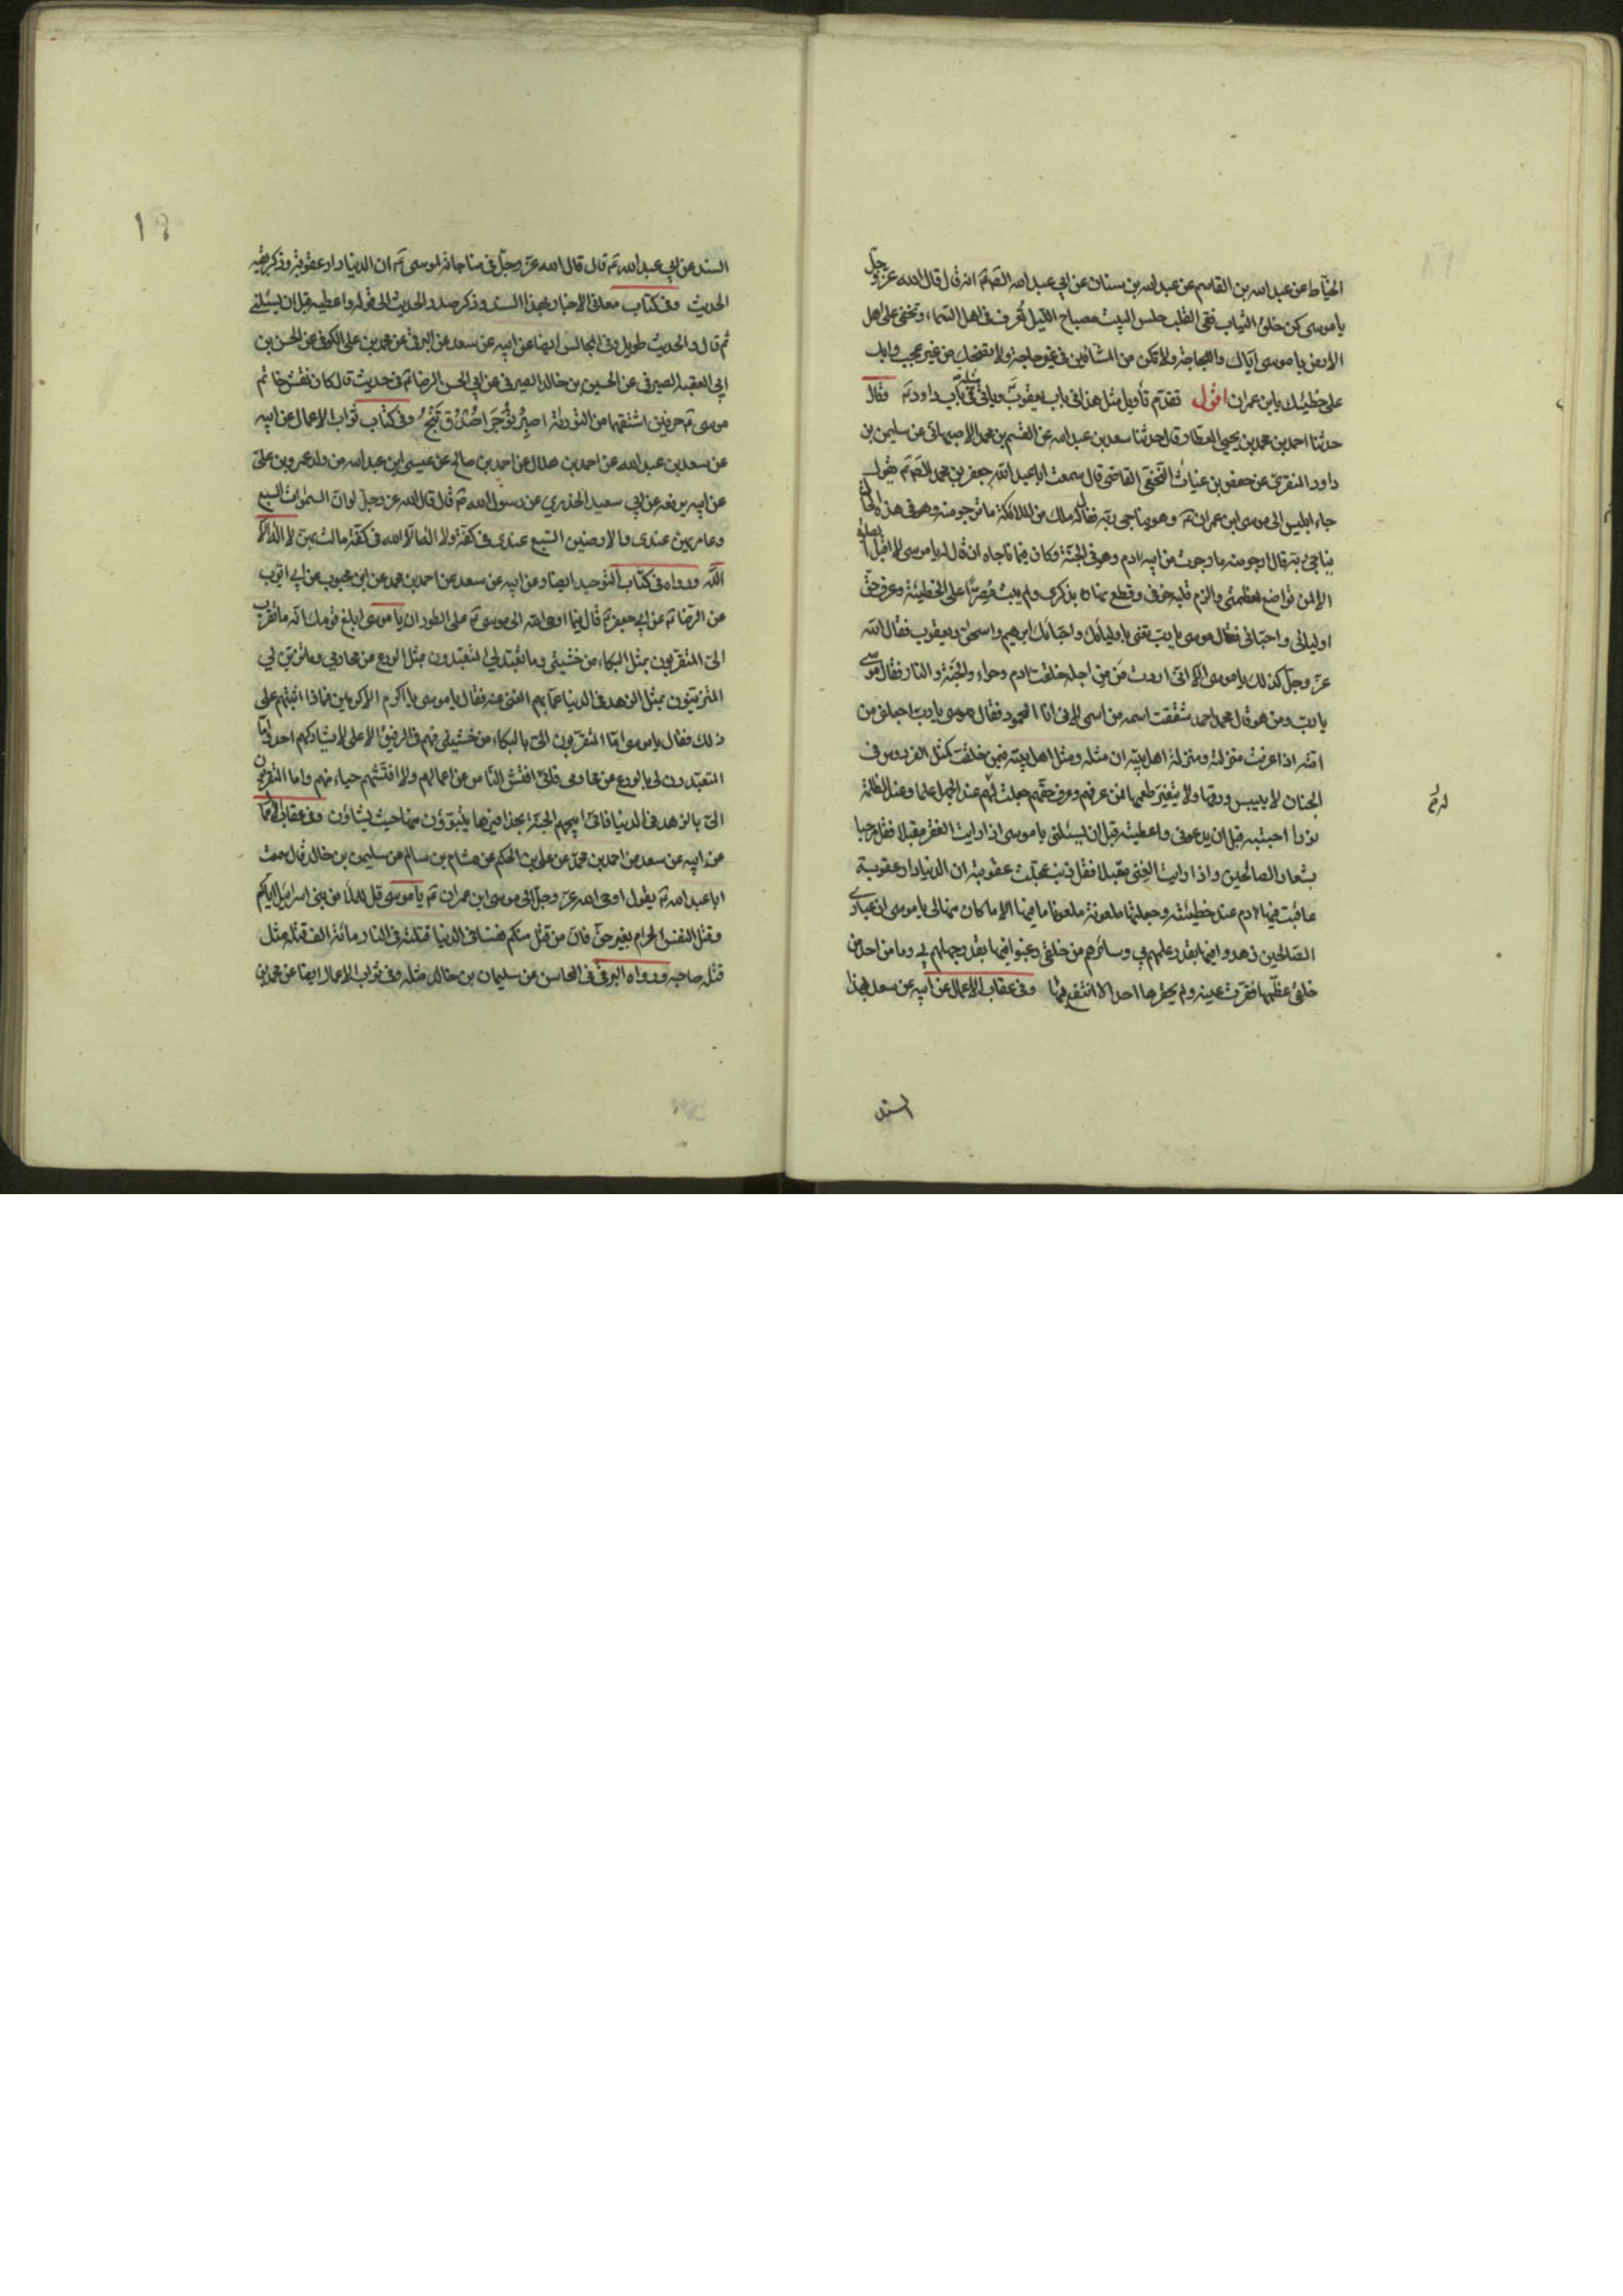 الخيّاط عن عبد الله بن القاسم عن عبد الله بن سنان عن ابي عبد الله الصّ انه قال قال الله عزّ وجلّ
يا موسى كن خلق الثياب نقى القلب حلس البيت مصباح الليل تُعرف فى اهل السّماء وتخفى على اهل
الارض يا موسى ايّاك واللجاجة ولا تكن من المشّائين فى غير حاجة ولا تضحك من غير عجب وابك
على خطيئتك يابن عمران اقول تقدّم تأويل مثل هذا فى باب يعقوب وياتى مثله فى باب داود وقال
حدثنا احمد بن محمد بن يحيى العطار قال حدثنا سعد بن عبد الله عن القسم بن محمد الاصبهانى عن سليمن بن
داود المنقرىّ عن حفص بن غياث النخعى القاضى قال سمعت ابا عبد الله جعفر بن محمد الصّ يقول
جاء ابليس الى موسى ابن عمران وهو يناجى ربّه فقال له ملك من الملائكة ما ترجو منه وهو فى هذه الحال
يناجى ربّه قال ارجو منه ما رجوت من ابيه ادم وهو فى الجنّة وكان فيما ناجاه ان قال له يا موسى لا اقبل الصلوة
الا لمن تواضع لعظمتى والزم قلبه خوفى وقطع نهاره بذكرى ولم يبت مُصِرًّا على الخطيئة وعرف حقّ
اوليائى واحبّائى فقال موسى يا ربّ تعنى باوليائك واحبّائك ابرهيم واسحق ويعقوب فقال الله
عزّ وجلّ كذلك يا موسى الا انى اردت مَن مِن اجله خلقت ادم وحواء والجنّة والنار فقال موسى
يا ربّ ومن هو قال محمد احمد شققت اسمه من اسمى لانى انا المحمود فقال موسى يا ربّ اجعلنى من
امّته اذا عرفت منزلته ومنزلة اهل بيته ان مثله ومثل اهل بيته فيمن خلقت كمثل الفردوس فى
الجنان لا ييبس ورقها ولا يتغيّر طعمها فمن عرفهم وعرف حقّهم جعلت له عند الجهل علما وعند الظلمة
نورا اجيبه قبل ان يدعونى واعطيته قبل ان يسئلنى يا موسى اذا رايت الفقر مقبلا فقل مرحبا
بشعار الصالحين واذا رايت الغنى مقبلا فقل ذنب عجّلت عقوبته ان الدنيا دار عقوبة
عاقبت فيها ادم عند خطيئته وجعلتها ملعونة ملعونا ما فيها الا ما كان منها لى يا موسى ان عبادى
الصّالحين زهدوا فيها بقدر علمهم بى وسائرهم من خلقى رغبوا فيها بقدر جهلهم بى وما من احد من
خلقى عظّمها فقرّت عينه ولم يحقرها احد الا انتفع بها وفى عقاب الاعمال عن ابيه عن سعد بهذا
السند
السند عن ابي عبد الله قال قال الله عزّ وجلّ فى مناجاته لموسى ان الدنيا دار عقوبة وذكر بقيّة
الحديث وفى كتاب معانى الاخبار بهذا السند وذكر صدر الحديث الى قوله واعطيه قبل ان يسئلنى
ثم قال والحديث طويل وفى المجالس ايضا عن ابيه عن سعد عن البرقى عن محمد بن على الكوفى عن الحسن بن
ابي العقبه الصيرفى عن الحسين بن خالد الصيرفى عن ابي الحسن الرضا فى حديث قال كان نقش خاتم
موسى حرفين اشتقهما من التوراية اصبِرْ تُؤْجَرْ اصْدُقْ تَنْجُ وفى كتاب ثواب الاعمال عن ابيه
عن سعد بن عبد الله عن احمد بن هلال عن احمد بن صالح عن عيسى ابن عبد الله من ولد عمر بن على
عن ابيه يرفعه عن ابي سعيد الخدري عن رسول الله قال قال الله عز وجل لو ان السموات السبع
وعامريهنّ عندى والارضين السّبع عندى فى كفّة ولا اله الا الله فى كفّة مالت بهنّ لا اله الا
الله ورواه فى كتاب التوحيد ايضا وعن ابيه عن سعد عن احمد بن محمد عن ابن محبوب عن ابي ايّوب
عن الرضا عن ابي جعفر قال فيما اوحى الله الى موسى على الطور ان يا موسى ابلغ قومك انّه ما تقرّب
الىّ المتقربون بمثل البكاء من خشيتى وما تعبّد لى المتعبّدون بمثل الورع عن محارمى وما تزيّن لى
المتزيّنون بمثل الزهد فى الدنيا عمّا بهم الغنى عنه فقال يا موسى يا اكرم الاكرمين فماذا اثبتهم على
ذلك فقال يا موسى امّا المتقرّبون الىّ بالبكاء من خشيتى فهم فى الرفيق الاعلى لا يشاركهم احد وامّا
المتعبّدون لى بالورع عن محارمى فانّى افتّش النّاس عن اعمالهم ولا افتّشهم حياء منهم واما المتقربون
الىّ بالزهد فى الدنيا فانّى ابيحهم الجنّة بحذافيرها يتبوّؤن منها حيث يشاؤن وفى عقاب الاعمال
عن ابيه عن سعد عن احمد بن محمّد عن على بن الحكم عن هشام بن سالم عن سليمن بن خالد قال سمعت
ابا عبد الله يقول اوحى الله عزّ وجلّ الى موسى ابن عمران يا موسى قل للملأ من بنى اسرائيل ايّاكم
وقتل النفس الحرام بغير حقّ فانّ من قتل منكم نفسا فى الدنيا قتلته فى النار مائة الف قتلة مثل
قتله صاحبه ورواه البرقى فى المحاسن عن سليمان بن خالد مثله وفى ثواب الاعمال ايضا عن محمد بن